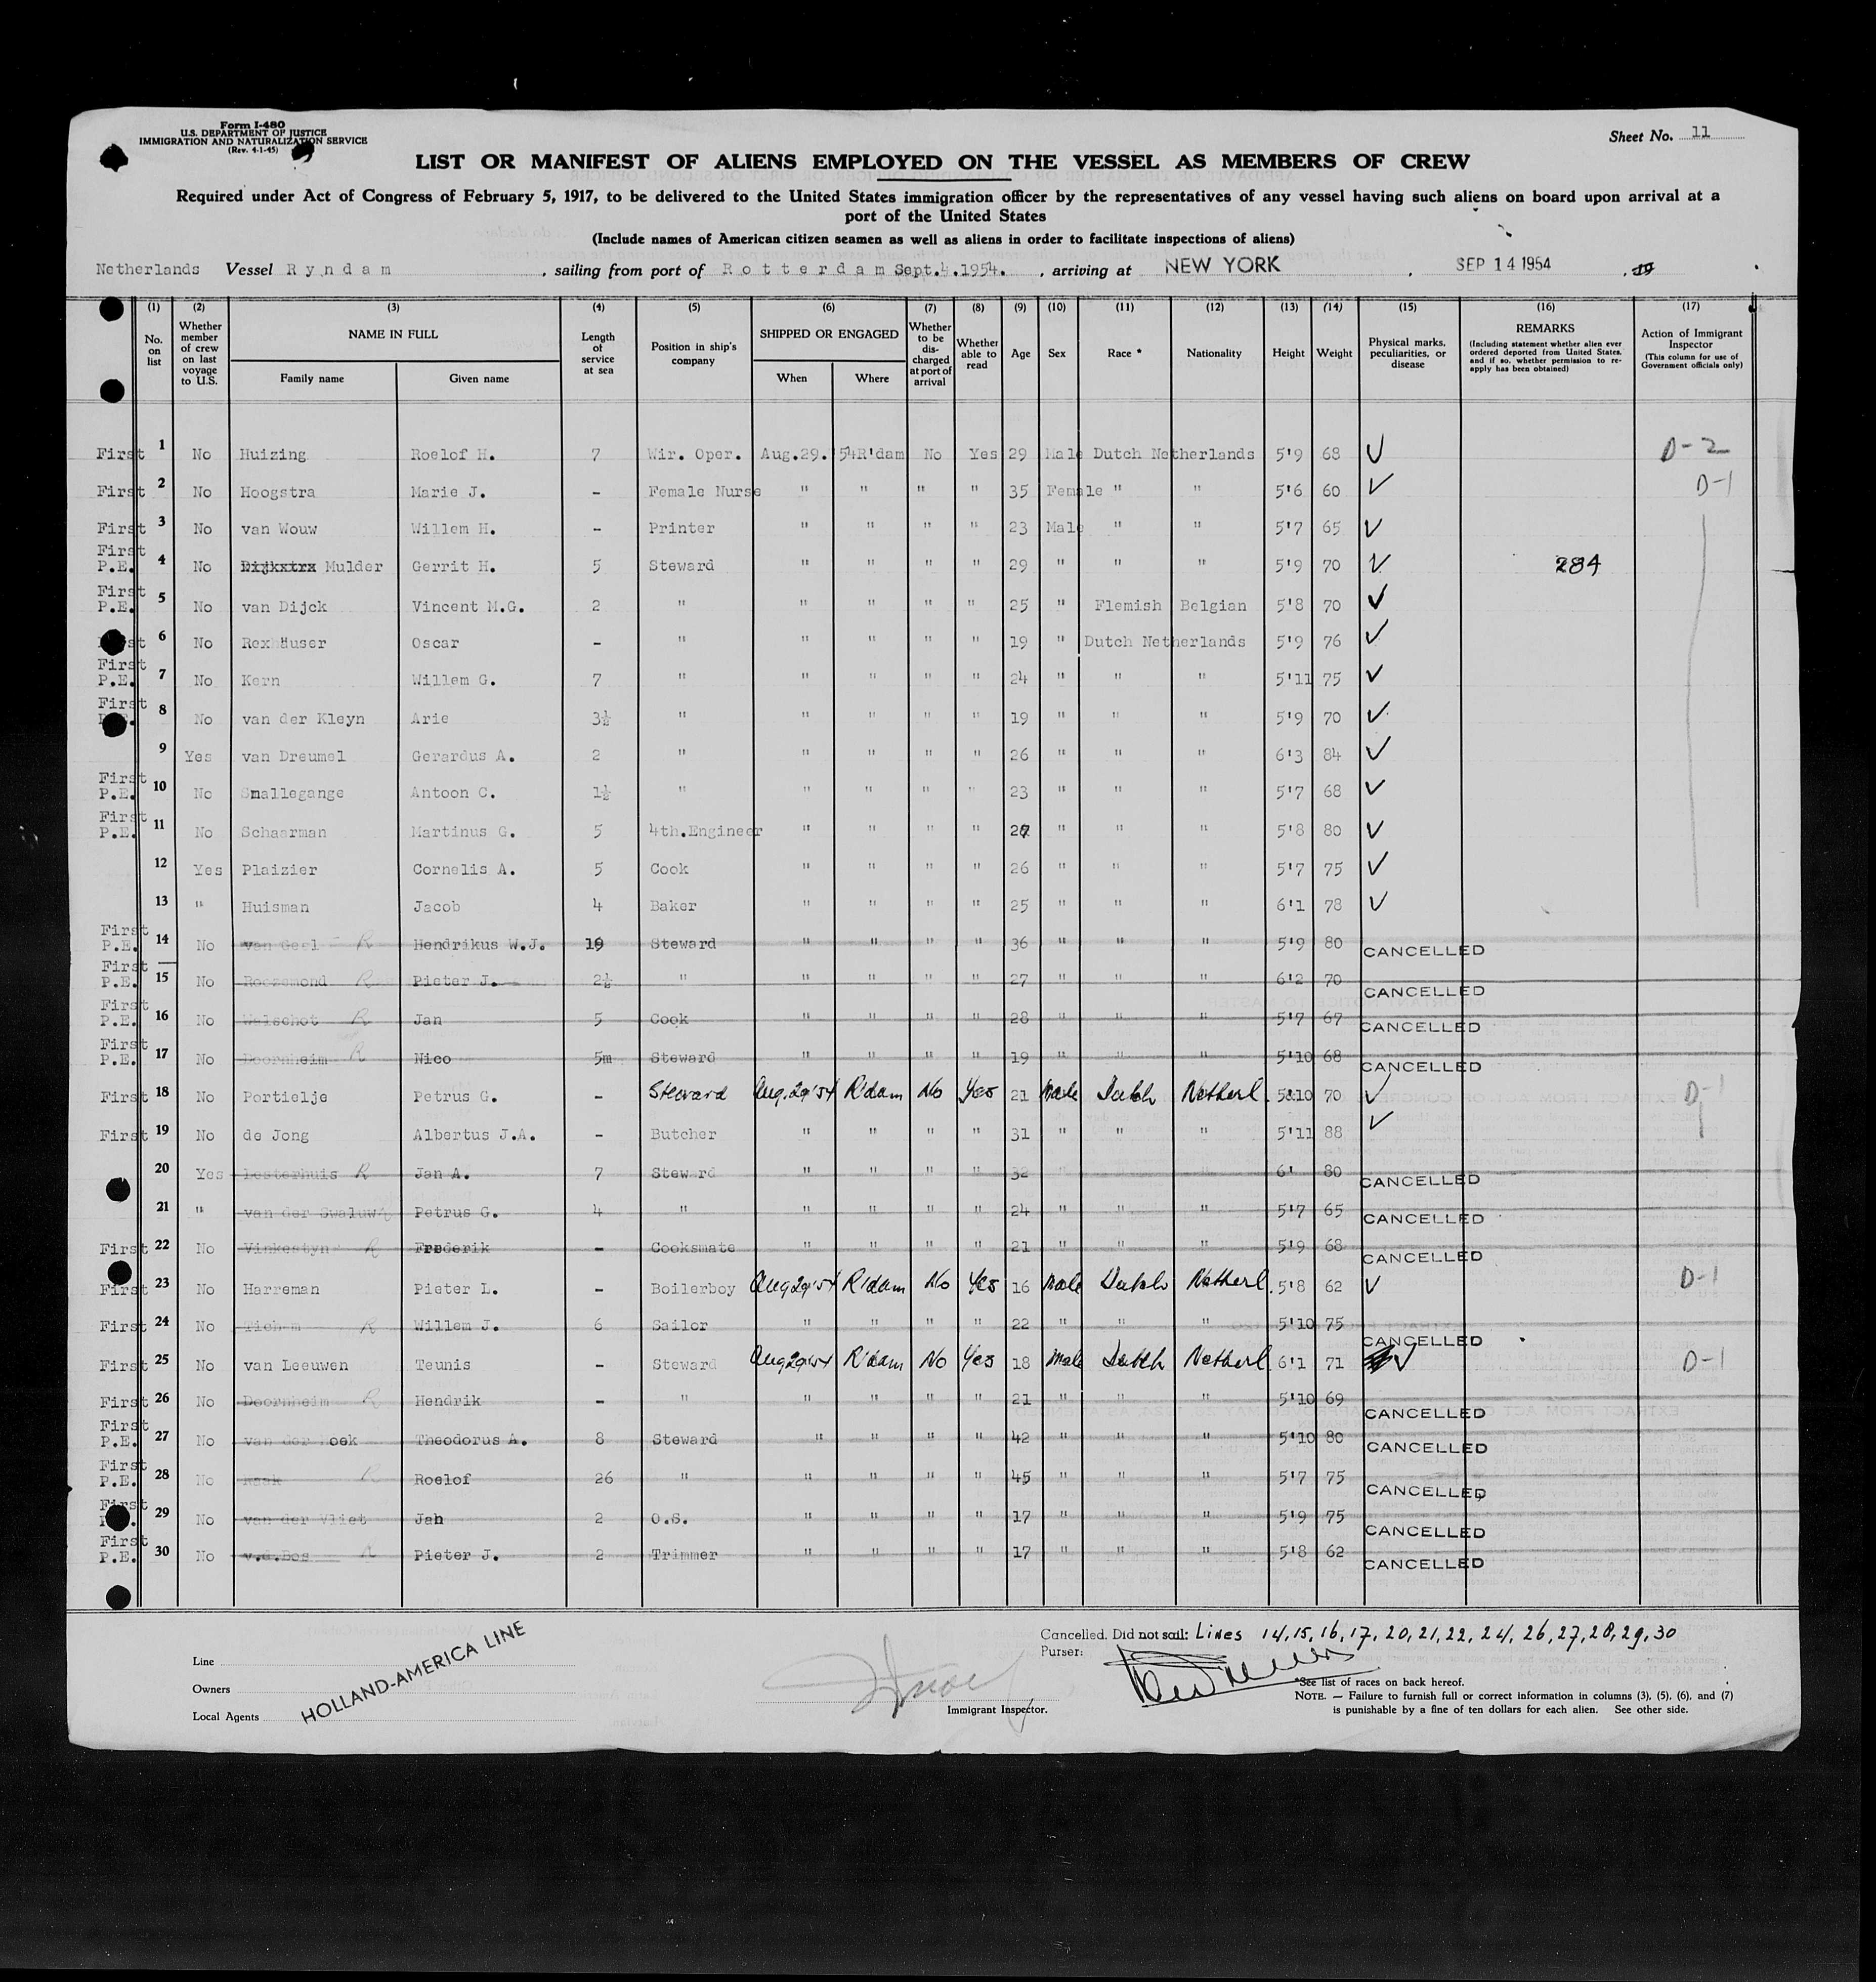 Form I-480
U.S. DEPARTMENT OF JUSTICE
IMMIGRATION AND NATURALIZATION SERVICE
(Rev. 4-1-45)
Sheet No. 11
LIST OR MANIFEST OF ALIENS EMPLOYED ON THE VESSEL AS MEMBERS OF CREW
Required under Act of Congress of February 5, 1917, to be delivered to the United States immigration officer by the representatives of any vessel having such aliens on board upon arrival at a
port of the United States
(Include names of American citizen seamen as well as aliens in order to facilitate inspections of aliens)
Netherlands Vessel Ryndam , sailing from port of Rotterdam Sept.4.1954. , arriving at NEW YORK , SEP 14 1954 , 19
(1) (2) (3) (4) (5) (6) (7) (8) (9) (10) (11) (12) (13) (14) (15) (16) (17)
No. on list Whether member of crew on last voyage to U.S. NAME IN FULL Family name Given name Length of service at sea Position in ship's company SHIPPED OR ENGAGED When Where Whether to be discharged at port of arrival Whether able to read Age Sex Race * Nationality Height Weight Physical marks, peculiarities, or disease REMARKS (Including statement whether alien ever ordered deported from United States, and if so, whether permission to re-apply has been obtained) Action of Immigrant Inspector (This column for use of Government officials only)
First 1 No Huizing Roelof H. 7 Wir. Oper. Aug.29.'54 R'dam No Yes 29 Male Dutch Netherlands 5'9 68 ✓ D-2
First 2 No Hoogstra Marie J. - Female Nurse " " " " 35 Female " " 5'6 60 ✓ D-1
First 3 No van Wouw Willem H. - Printer " " " " 23 Male " " 5'7 65 ✓
First P.E. 4 No Mulder Gerrit H. 5 Steward " " " " 29 " " " 5'9 70 ✓ 284
First P.E. 5 No van Dijck Vincent M.G. 2 " " " " " 25 " Flemish Belgian 5'8 70 ✓
6 No Rexhäuser Oscar - " " " " " 19 " Dutch Netherlands 5'9 76 ✓
First P.E. 7 No Kern Willem G. 7 " " " " " 24 " " " 5'11 75 ✓
First 8 No van der Kleyn Arie 3½ " " " " " 19 " " " 5'9 70 ✓
9 Yes van Dreumel Gerardus A. 2 " " " " " 26 " " " 6'3 84 ✓
First P.E. 10 No Smallegange Antoon C. 1½ " " " " " 23 " " " 5'7 68 ✓
First P.E. 11 No Schaarman Martinus G. 5 4th.Engineer " " " " " " " 5'8 80 ✓
12 Yes Plaizier Cornelis A. 5 Cook " " " " 26 " " " 5'7 75 ✓
13 " Huisman Jacob 4 Baker " " " " 25 " " " 6'1 78 ✓
First P.E. 14 No van Geel R Hendrikus W.J. 19 Steward " " " " 36 " " " 5'9 80 CANCELLED
First P.E. 15 No Roozemond R Pieter J. 2½ " " " " " 27 " " " 6'2 70 CANCELLED
First P.E. 16 No Walschot R Jan 5 Cook " " " " 28 " " " 5'7 67 CANCELLED
First P.E. 17 No Doornheim R Nico 5m Steward " " " " 19 " " " 5'10 68 CANCELLED
First 18 No Portielje Petrus G. - Steward Aug.29'54 R'dam No Yes 21 Male Dutch Netherl. 5'10 70 ✓ D-1
First 19 No de Jong Albertus J.A. - Butcher " " " " 31 " " " 5'11 88 ✓
20 Yes R Jan A. 7 Steward " " " " 32 " " " 6' 80 CANCELLED
21 " van der Swaluw Petrus G. 4 " " " " " 24 " " " 5'7 65 CANCELLED
First 22 No Vinkestyn R Frederik - Cooksmate " " " " 21 " " " 5'9 68 CANCELLED
First 23 No Harreman Pieter L. - Boilerboy Aug29'54 R'dam No Yes 16 Male Dutch Netherl. 5'8 62 ✓ D-1
First 24 No R Willem J. 6 Sailor " " " " 22 " " " 5'10 75 CANCELLED
First 25 No van Leeuwen Teunis - Steward Aug29'54 R'dam No Yes 18 Male Dutch Netherl. 6'1 71 ✓ D-1
First 26 No Doornheim R Hendrik - " " " " " 21 " " " 5'10 69 CANCELLED
First P.E. 27 No van der Theodorus A. 8 Steward " " " " 42 " " " 5'10 80 CANCELLED
First P.E. 28 No R Roelof 26 " " " " " 45 " " " 5'7 75 CANCELLED
First 29 No van der Vliet Jan 2 O.S. " " " " 17 " " " 5'9 75 CANCELLED
First P.E. 30 No v.d.Bos R Pieter J. 2 Trimmer " " " " 17 " " " 5'8 62 CANCELLED
Cancelled. Did not sail: Lines 14,15,16,17,20,21,22,24,26,27,28,29,30
Purser:
Line
Owners
Local Agents
HOLLAND-AMERICA LINE
Immigrant Inspector.
*See list of races on back hereof.
NOTE. — Failure to furnish full or correct information in columns (3), (5), (6), and (7)
is punishable by a fine of ten dollars for each alien. See other side.